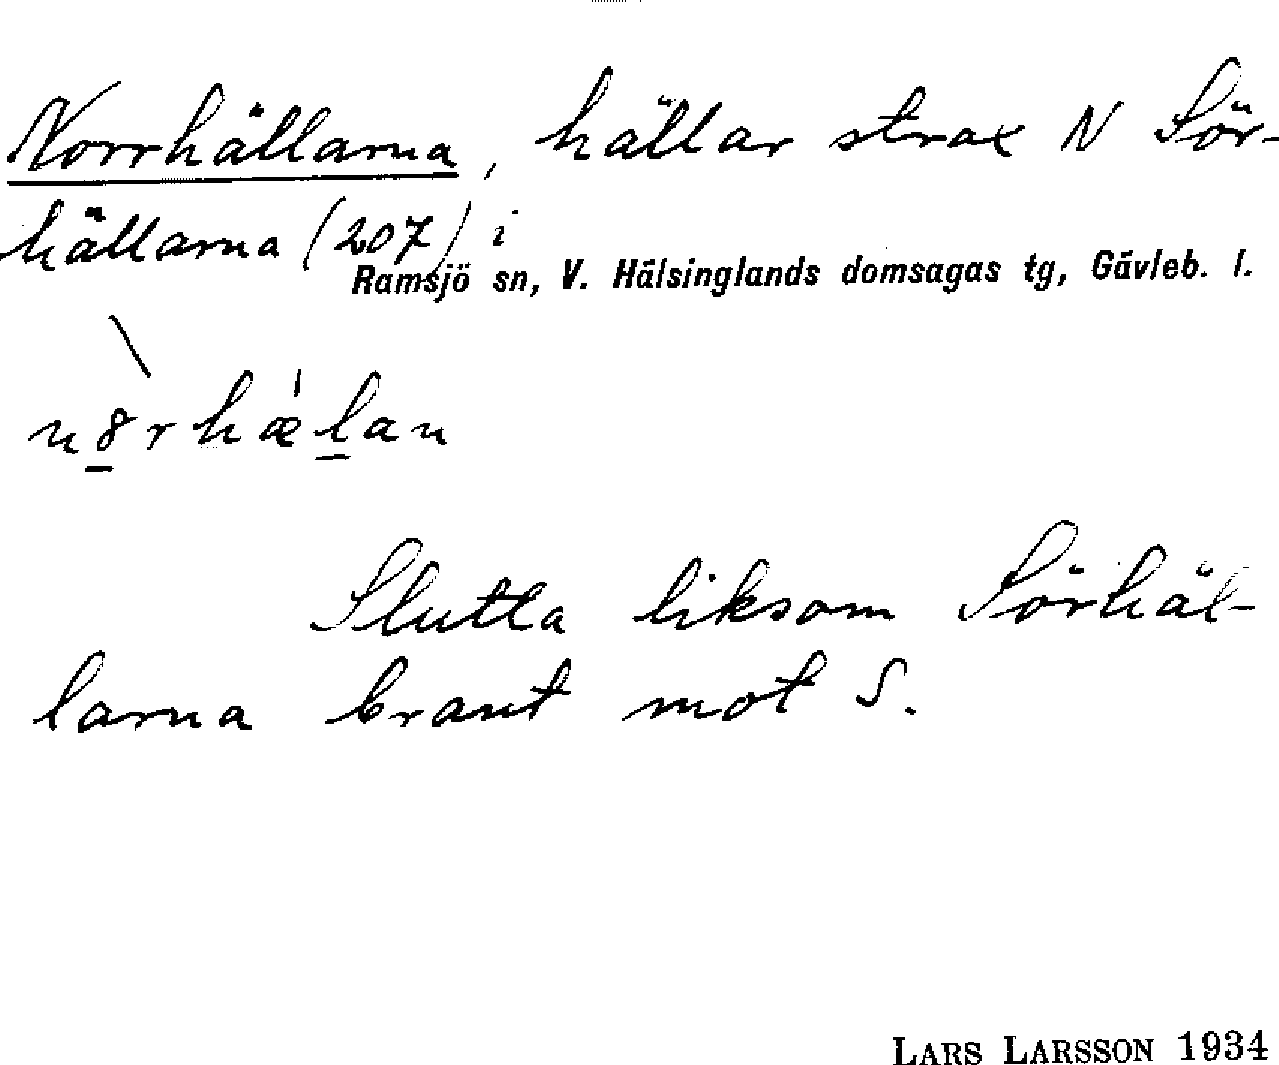 Norrhällarna, hällar strax N Sör-
hällarna (207) i
Ramsjö sn, V. Hälsinglands domsagas tg, Gävleb. l.
n8̲rhæ̍l̲an
Slutta liksom Sörhäl-
larna brant mot S.
LARS LARSSON 1934